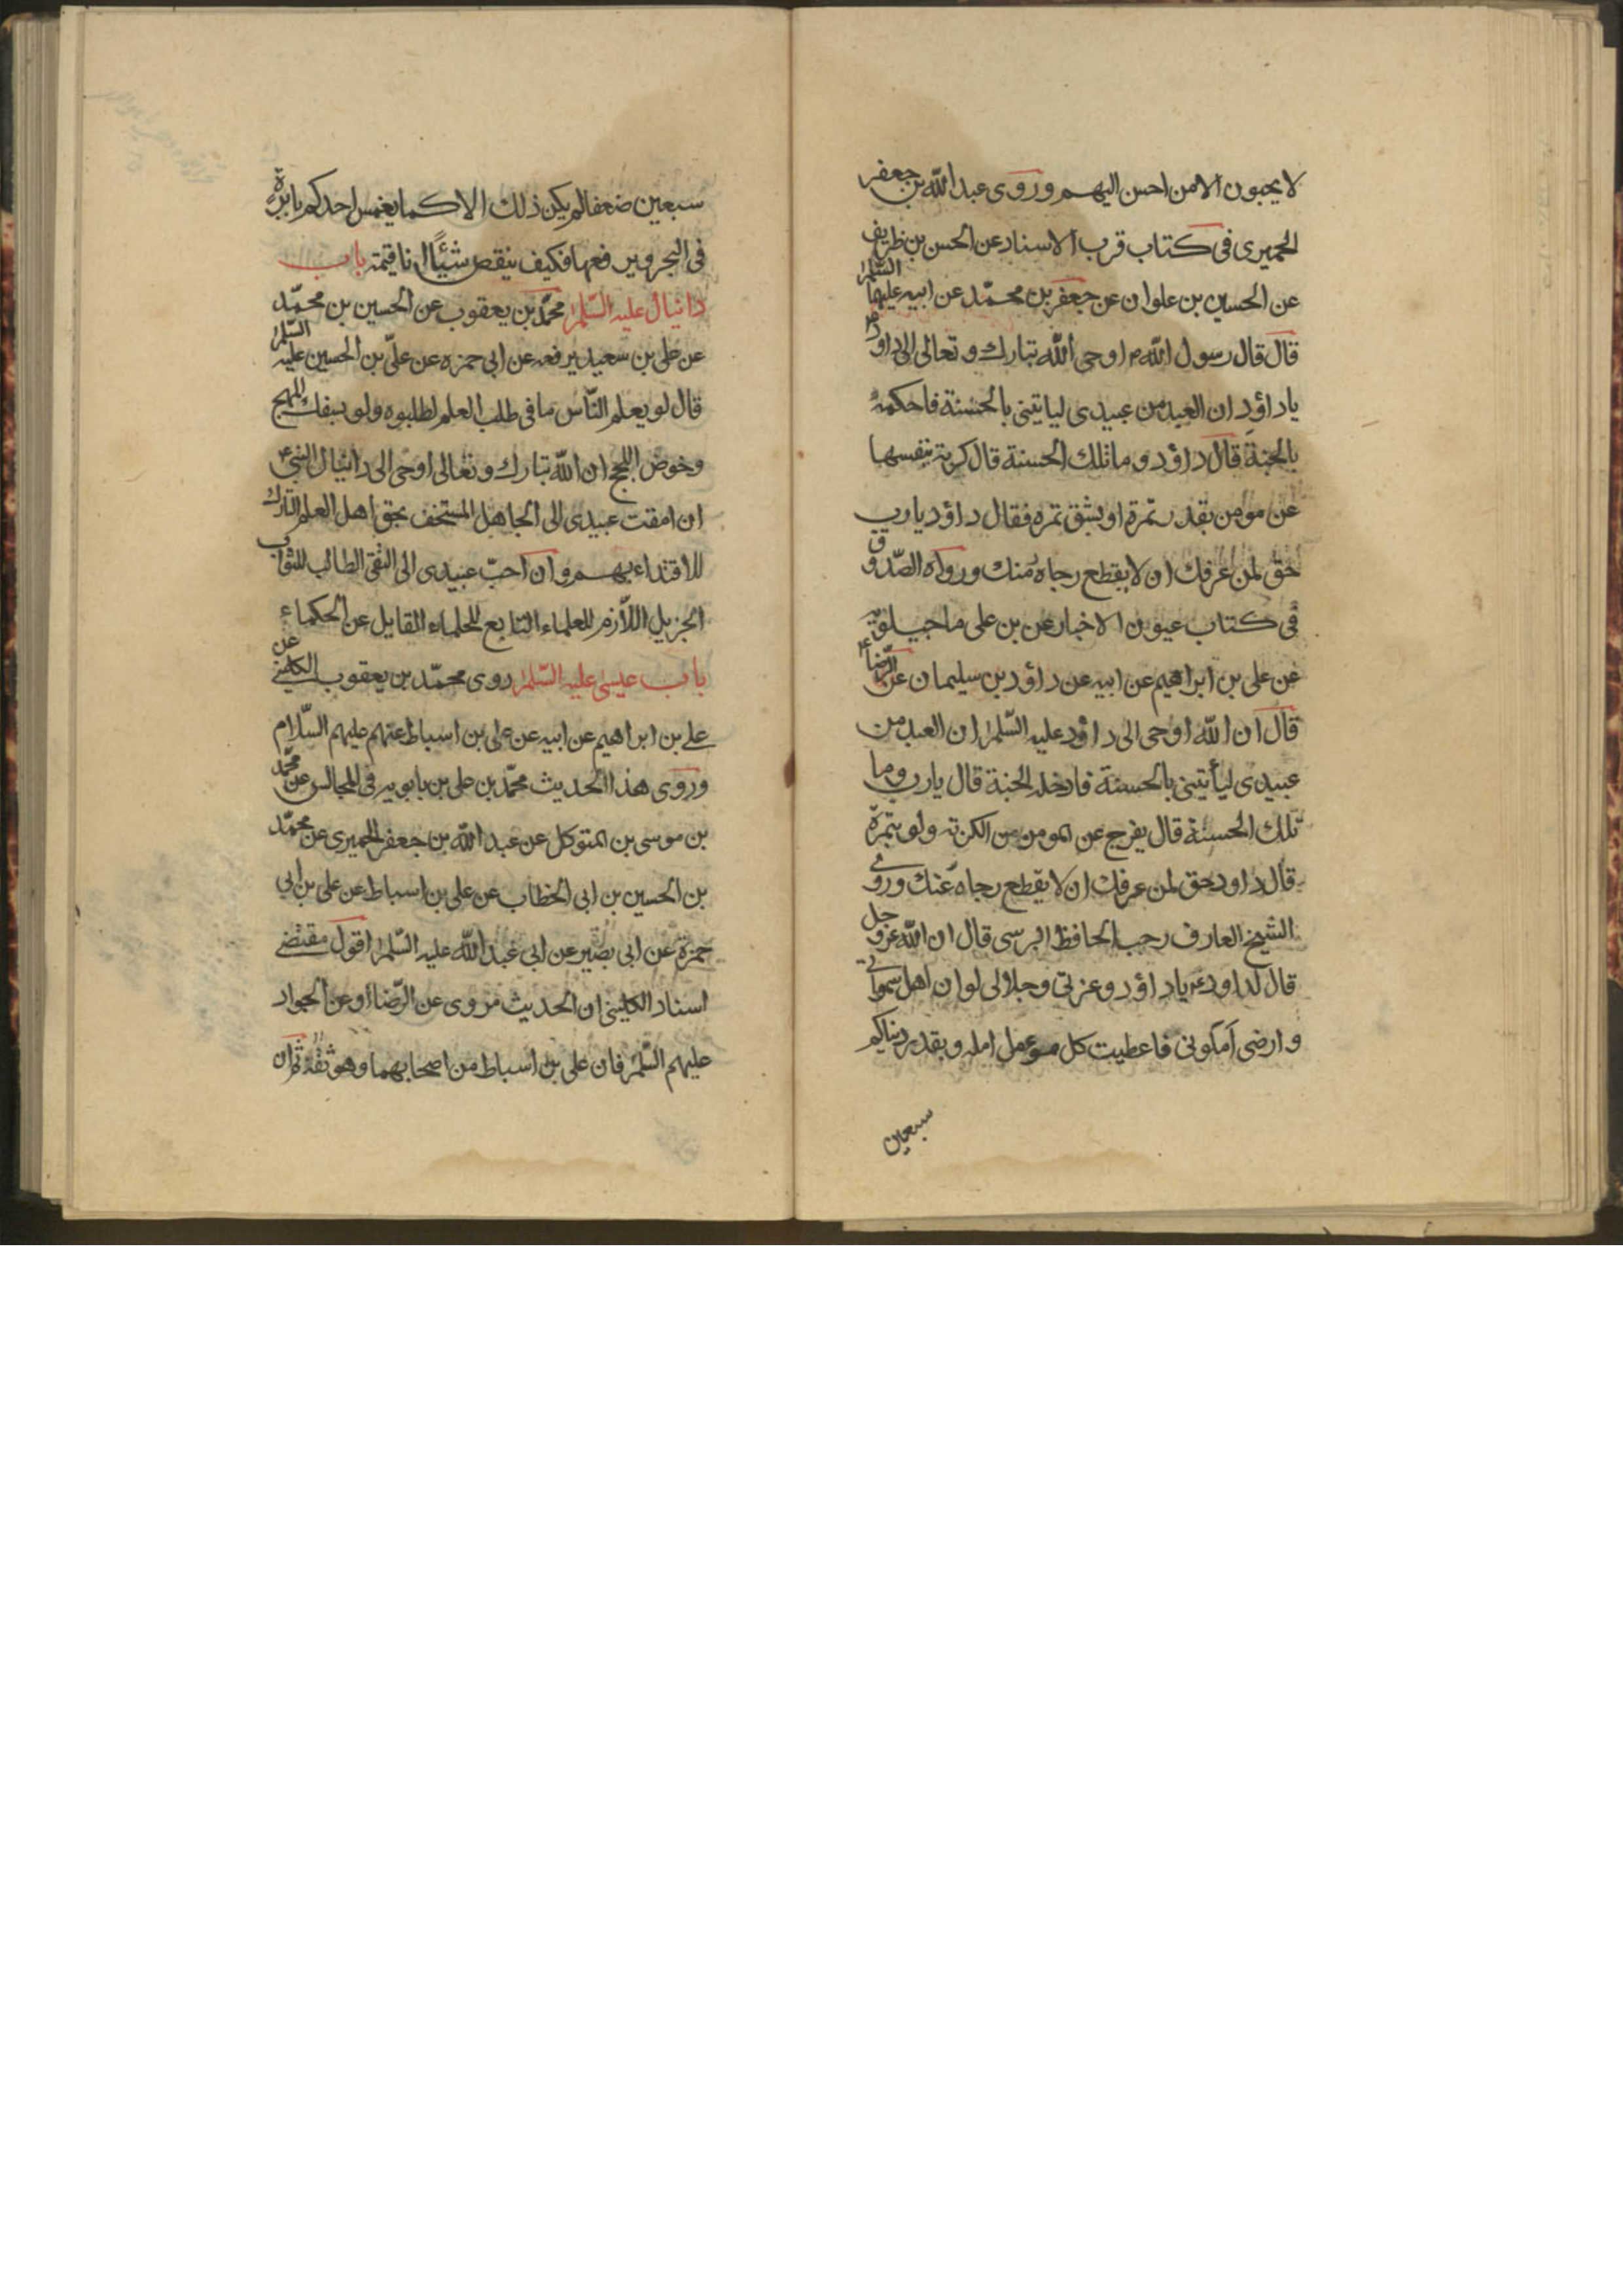 لا يحبون الا من احسن اليهم وروى عبد الله بن جعفر
الحميرى فى كتاب قرب الاسناد عن الحسن بن ظريف
عن الحسين بن علوان عن جعفر بن محمّد عن ابيه عليهما السّلم
قال قال رسول الله ص اوحى الله تبارك وتعالى الى داود
ياداؤد ان العبد من عبيدى لياتينى بالحسنة فاحكمه
بالجنة قال داؤد وما تلك الحسنة قال كربة ينفسها
عن مؤمن بقدر تمرة او بشق تمره فقال داؤد يارب
حق لمن عرفك ان لا يقطع رجاه منك ورواه الصّدوق
فى كتاب عيون الاخبار عن بن على ماجيلويه
عن على بن ابراهيم عن ابيه عن داؤد بن سليمان عن الرّضا ع
قال ان الله اوحى الى داؤد عليه السّلم ان العبد من
عبيدى ليأتينى بالحسنة فادخله الجنة قال يارب وما
تلك الحسنة قال يفرج عن المومن من الكربة ولو بتمرة
قال داود حق لمن عرفك ان لا يقطع رجاه عنك وروى
الشيخ العارف رجب الحافظ البرسى قال ان الله عز وجل
قال لداود ع ياداؤد وعزتى وجلالى لو ان اهل سمواتى
وارضى املونى فاعطيت كل مومل امله وبقدر دنياكم
سبعين
سبعين ضعفا لم يكن ذلك الا كما يغمس احدكم بابرة
فى البحر ويرفعها فكيف ينقص شيئًا انا قيمته باب
دانيال عليه السّلم محمّد بن يعقوب عن الحسين بن محمّد
عن على بن سعيد يرفعه عن ابى حمزه عن علىّ بن الحسين عليه السّلم
قال لو يعلم النّاس ما فى طلب العلم لطلبوه ولو بسفك المهج
وخوض اللجج ان الله تبارك وتعالى اوحى الى دانيال النبى ع
ان امقت عبيدى الى الجاهل المستخف بحق اهل العلم التارك
للاقتداء بهم وان احبّ عبيدى الى التقى الطالب للثواب
الجزيل اللّازم للعلماء التابع للحلماء القايل عن الحكماء
باب عيسى عليه السّلم روى محمّد بن يعقوب الكلينى عن
على بن ابراهيم عن ابيه عن على بن اسباط عنهم عليهم السّلام
وروى هذا الحديث محمّد بن على بن بابويه فى المجالس عن محمّد
بن موسى بن المتوكل عن عبد الله بن جعفر الحميرى عن محمّد
بن الحسين بن ابى الخطاب عن على بن اسباط عن على بن ابى
حمزة عن ابى بصير عن ابى عبد الله عليه السّلم اقول مقتضى
اسناد الكلينى ان الحديث مروى عن الرّضا او عن الجواد
عليهم السّلم فان على بن اسباط من اصحابهما وهو ثقة ثم ان